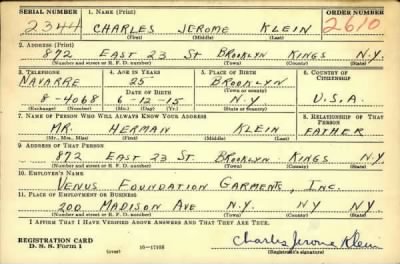 SERIAL NUMBER 1. NAME (Print) ORDER NUMBER
2344 CHARLES JEROME KLEIN 2610
(First) (Middle) (Last)
2. ADDRESS (Print)
872 EAST 23 St BROOKLYN KINGS N.Y.
(Number and street or R. F. D. number) (Town) (County) (State)
3. TELEPHONE 4. AGE IN YEARS 5. PLACE OF BIRTH 6. COUNTRY OF CITIZENSHIP
NAVARRE 25 BROOKLYN
DATE OF BIRTH (Town or county)
8-4068 6-12-15 N.Y U.S.A.
(Exchange) (Number) (Mo.) (Day) (Yr.) (State or country)
7. NAME OF PERSON WHO WILL ALWAYS KNOW YOUR ADDRESS 8. RELATIONSHIP OF THAT PERSON
MR. HERMAN KLEIN FATHER
(Mr., Mrs., Miss) (First) (Middle) (Last)
9. ADDRESS OF THAT PERSON
872 EAST 23 St. BROOKLYN KINGS N.Y.
(Number and street or R. F. D. number) (Town) (County) (State)
10. EMPLOYER'S NAME
VENUS FOUNDATION GARMENTS, INC.
11. PLACE OF EMPLOYMENT OR BUSINESS
200 MADISON AVE N.Y. NY NY
(Number and street or R. F. D. number) (Town) (County) (State)
I AFFIRM THAT I HAVE VERIFIED ABOVE ANSWERS AND THAT THEY ARE TRUE.
REGISTRATION CARD
D. S. S. Form 1 (over) 16-17105 Charles Jerome Klein
(Registrant's signature)